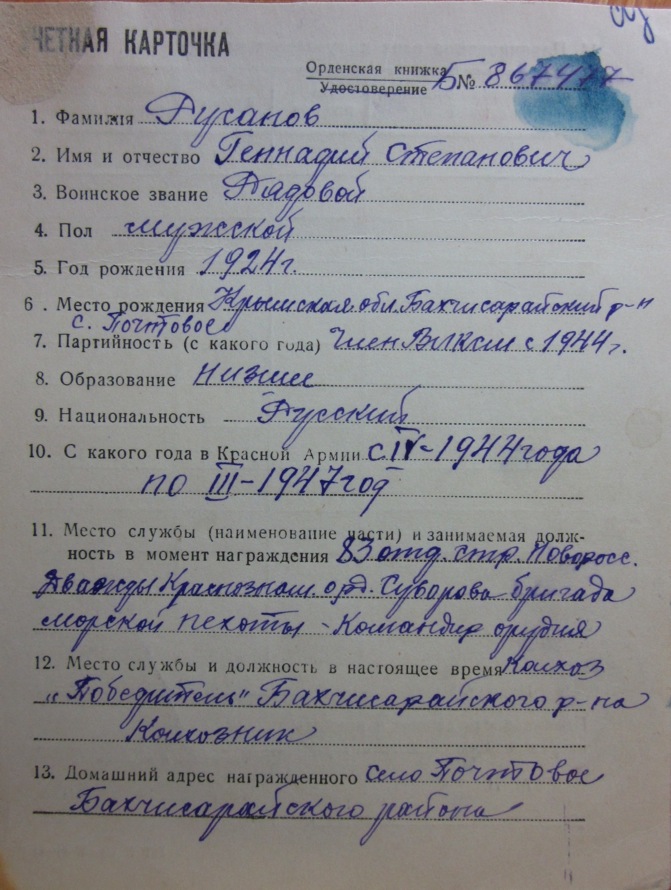 УЧЕТНАЯ КАРТОЧКА
Орденская книжка
Удостоверение Б № 867477
1. Фамилия Русанов
2. Имя и отчество Геннадий Степанович
3. Воинское звание Рядовой
4. Пол мужской
5. Год рождения 1924г.
6. Место рождения Крымская обл. Бахчисарайский р-н
с. Почтовое
7. Партийность (с какого года) Член ВЛКСМ с 1944г.
8. Образование низшее
9. Национальность Русский
10. С какого года в Красной Армии с IV-1944 года
по III-1947 год
11. Место службы (наименование части) и занимаемая долж-
ность в момент награждения 83 отд. стр. Новоросс.
Дважды Краснознам. орд. Суворова бригада
морской пехоты - Командир орудия
12. Место службы и должность в настоящее время Колхоз
"Победитель" Бахчисарайского р-на
Колхозник
13. Домашний адрес награжденного село Почтовое
Бахчисарайского района